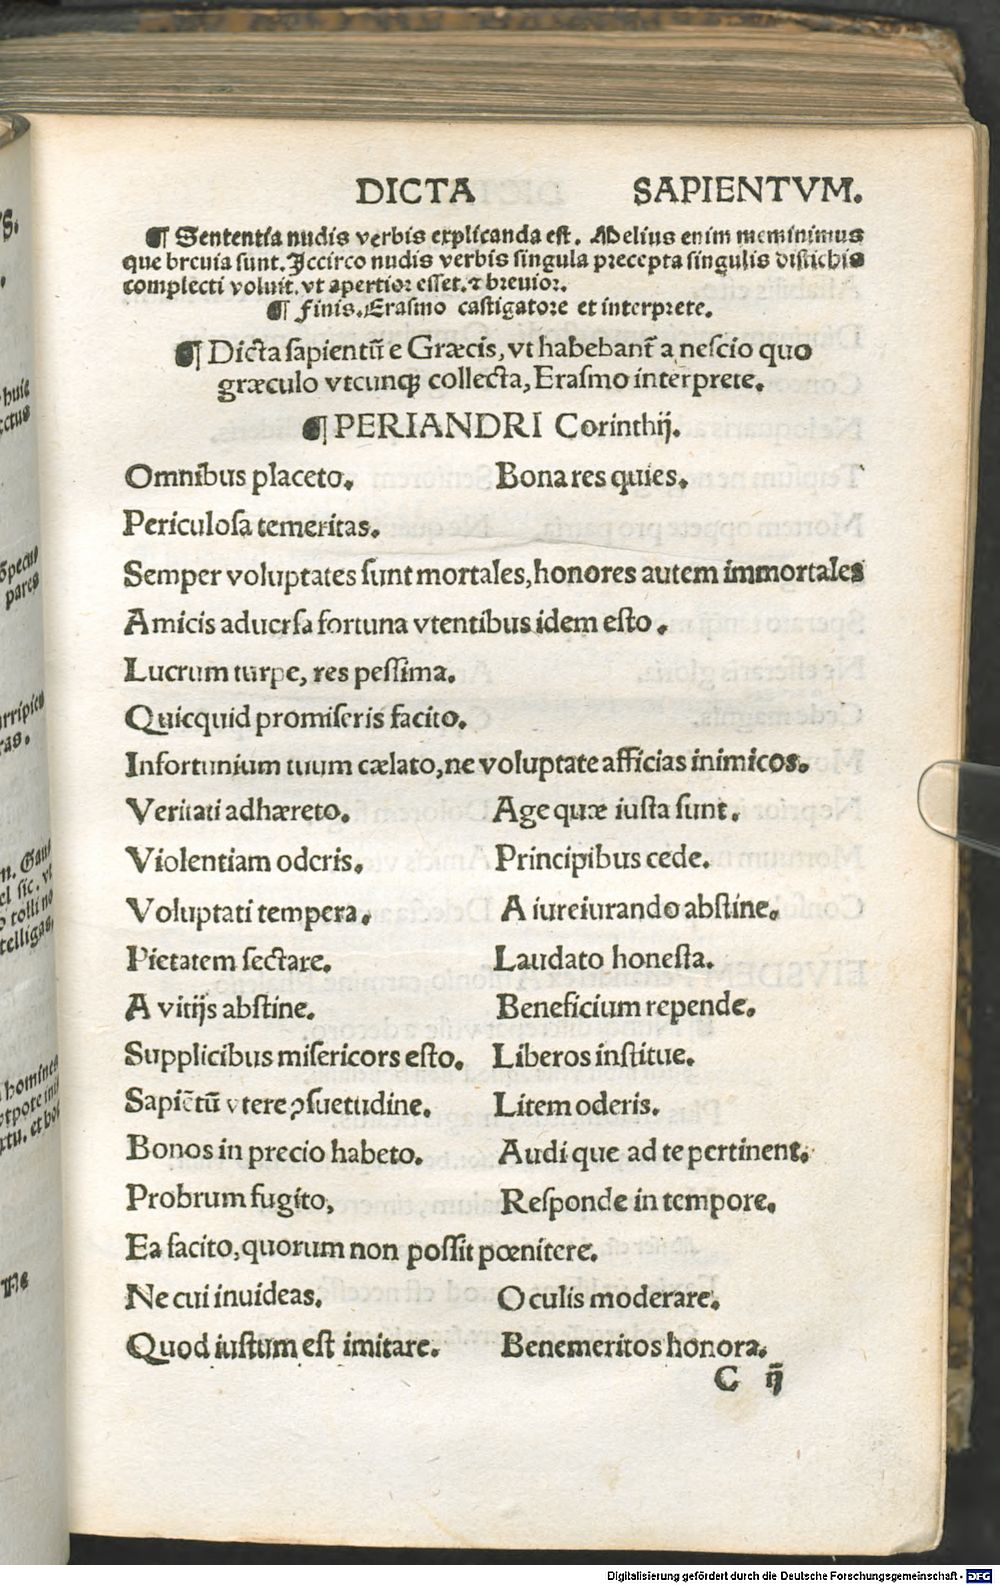 DICTA SAPIENTVM.
¶ Sententia nudis verbis explicanda est. Melius enim meminimus
que breuia sunt. Iccirco nudis verbis singula precepta singulis distichis
complecti voluit. vt apertior esset. ⁊ breuior.
¶ Finis. Erasmo castigatore et interprete.
¶ Dicta sapientū e Græcis, vt habebant̃ a nescio quo
græculo vtcunqꝫ collecta, Erasmo interprete.
¶ PERIANDRI Corinthij.
Omnibus placeto. Bona res quies.
Periculosa temeritas.
Semper voluptates sunt mortales, honores autem immortales
Amicis aduersa fortuna vtentibus idem esto.
Lucrum turpe, res pessima.
Quicquid promiseris facito.
Infortunium tuum cælato, ne voluptate afficias inimicos.
Veritati adhæreto. Age quæ iusta sunt.
Violentiam oderis. Principibus cede.
Voluptati tempera. A iureiurando abstine.
Pietatem sectare. Laudato honesta.
A vitijs abstine. Beneficium repende.
Supplicibus misericors esto. Liberos institue.
Sapiētū vtere ꝯsuetudine. Litem oderis.
Bonos in precio habeto. Audi que ad te pertinent.
Probrum fugito, Responde in tempore.
Ea facito, quorum non possit pœnitere.
Ne cui inuideas. Oculis moderare.
Quod iustum est imitare. Benemeritos honora.
C ij
Digitalisierung gefördert durch die Deutsche Forschungsgemeinschaft - DFG